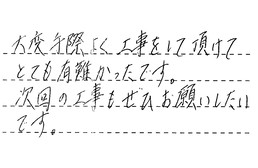 大変手際よく工事をして頂けて
とても有難かったです。
次回の工事もぜひお願いしたい
です。